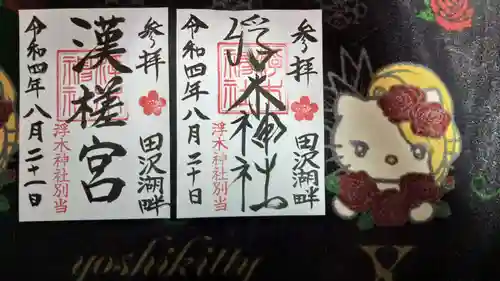 参拝
田沢湖畔
漢槎宮
浮木神社別当
令和四年八月二十一日
参拝
田沢湖畔
浮木神社
浮木神社別当
令和四年八月二十日
yoshikitty